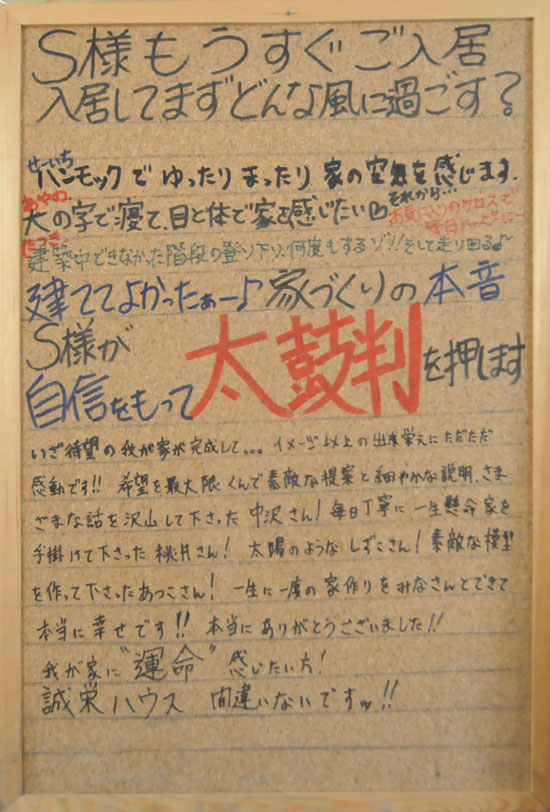 S様もうすぐご入居
入居してまずどんな風に過ごす?
せーいち
ハンモックでゆったりまったり家の空気を感じます.
あやの
大の字で寝て、目と体で家を感じたい
それから…
お気に入りのクロスで
毎日ハッピーに…
建築中できなかった階段の登り下り、何度もするゾ!!そして走り回る♪
建ててよかったぁー♪家づくりの本音
S様が
自信をもって太鼓判を押します
いざ待望の我が家が完成して… イメージ以上の出来栄えにただただ
感動です!! 希望を最大限くんで素敵な提案と細やかな説明、さま
ざまな話を沢山して下さった中沢さん! 毎日丁寧に一生懸命家を
手掛けて下さった桃井さん! 太陽のようなしずこさん! 素敵な模型
を作って下さったあつこさん! 一生に一度の家作りをみなさんとできて
本当に幸せです!! 本当にありがとうございました!!
我が家に"運命"感じたい方!
誠栄ハウス 間違いないですッ!!